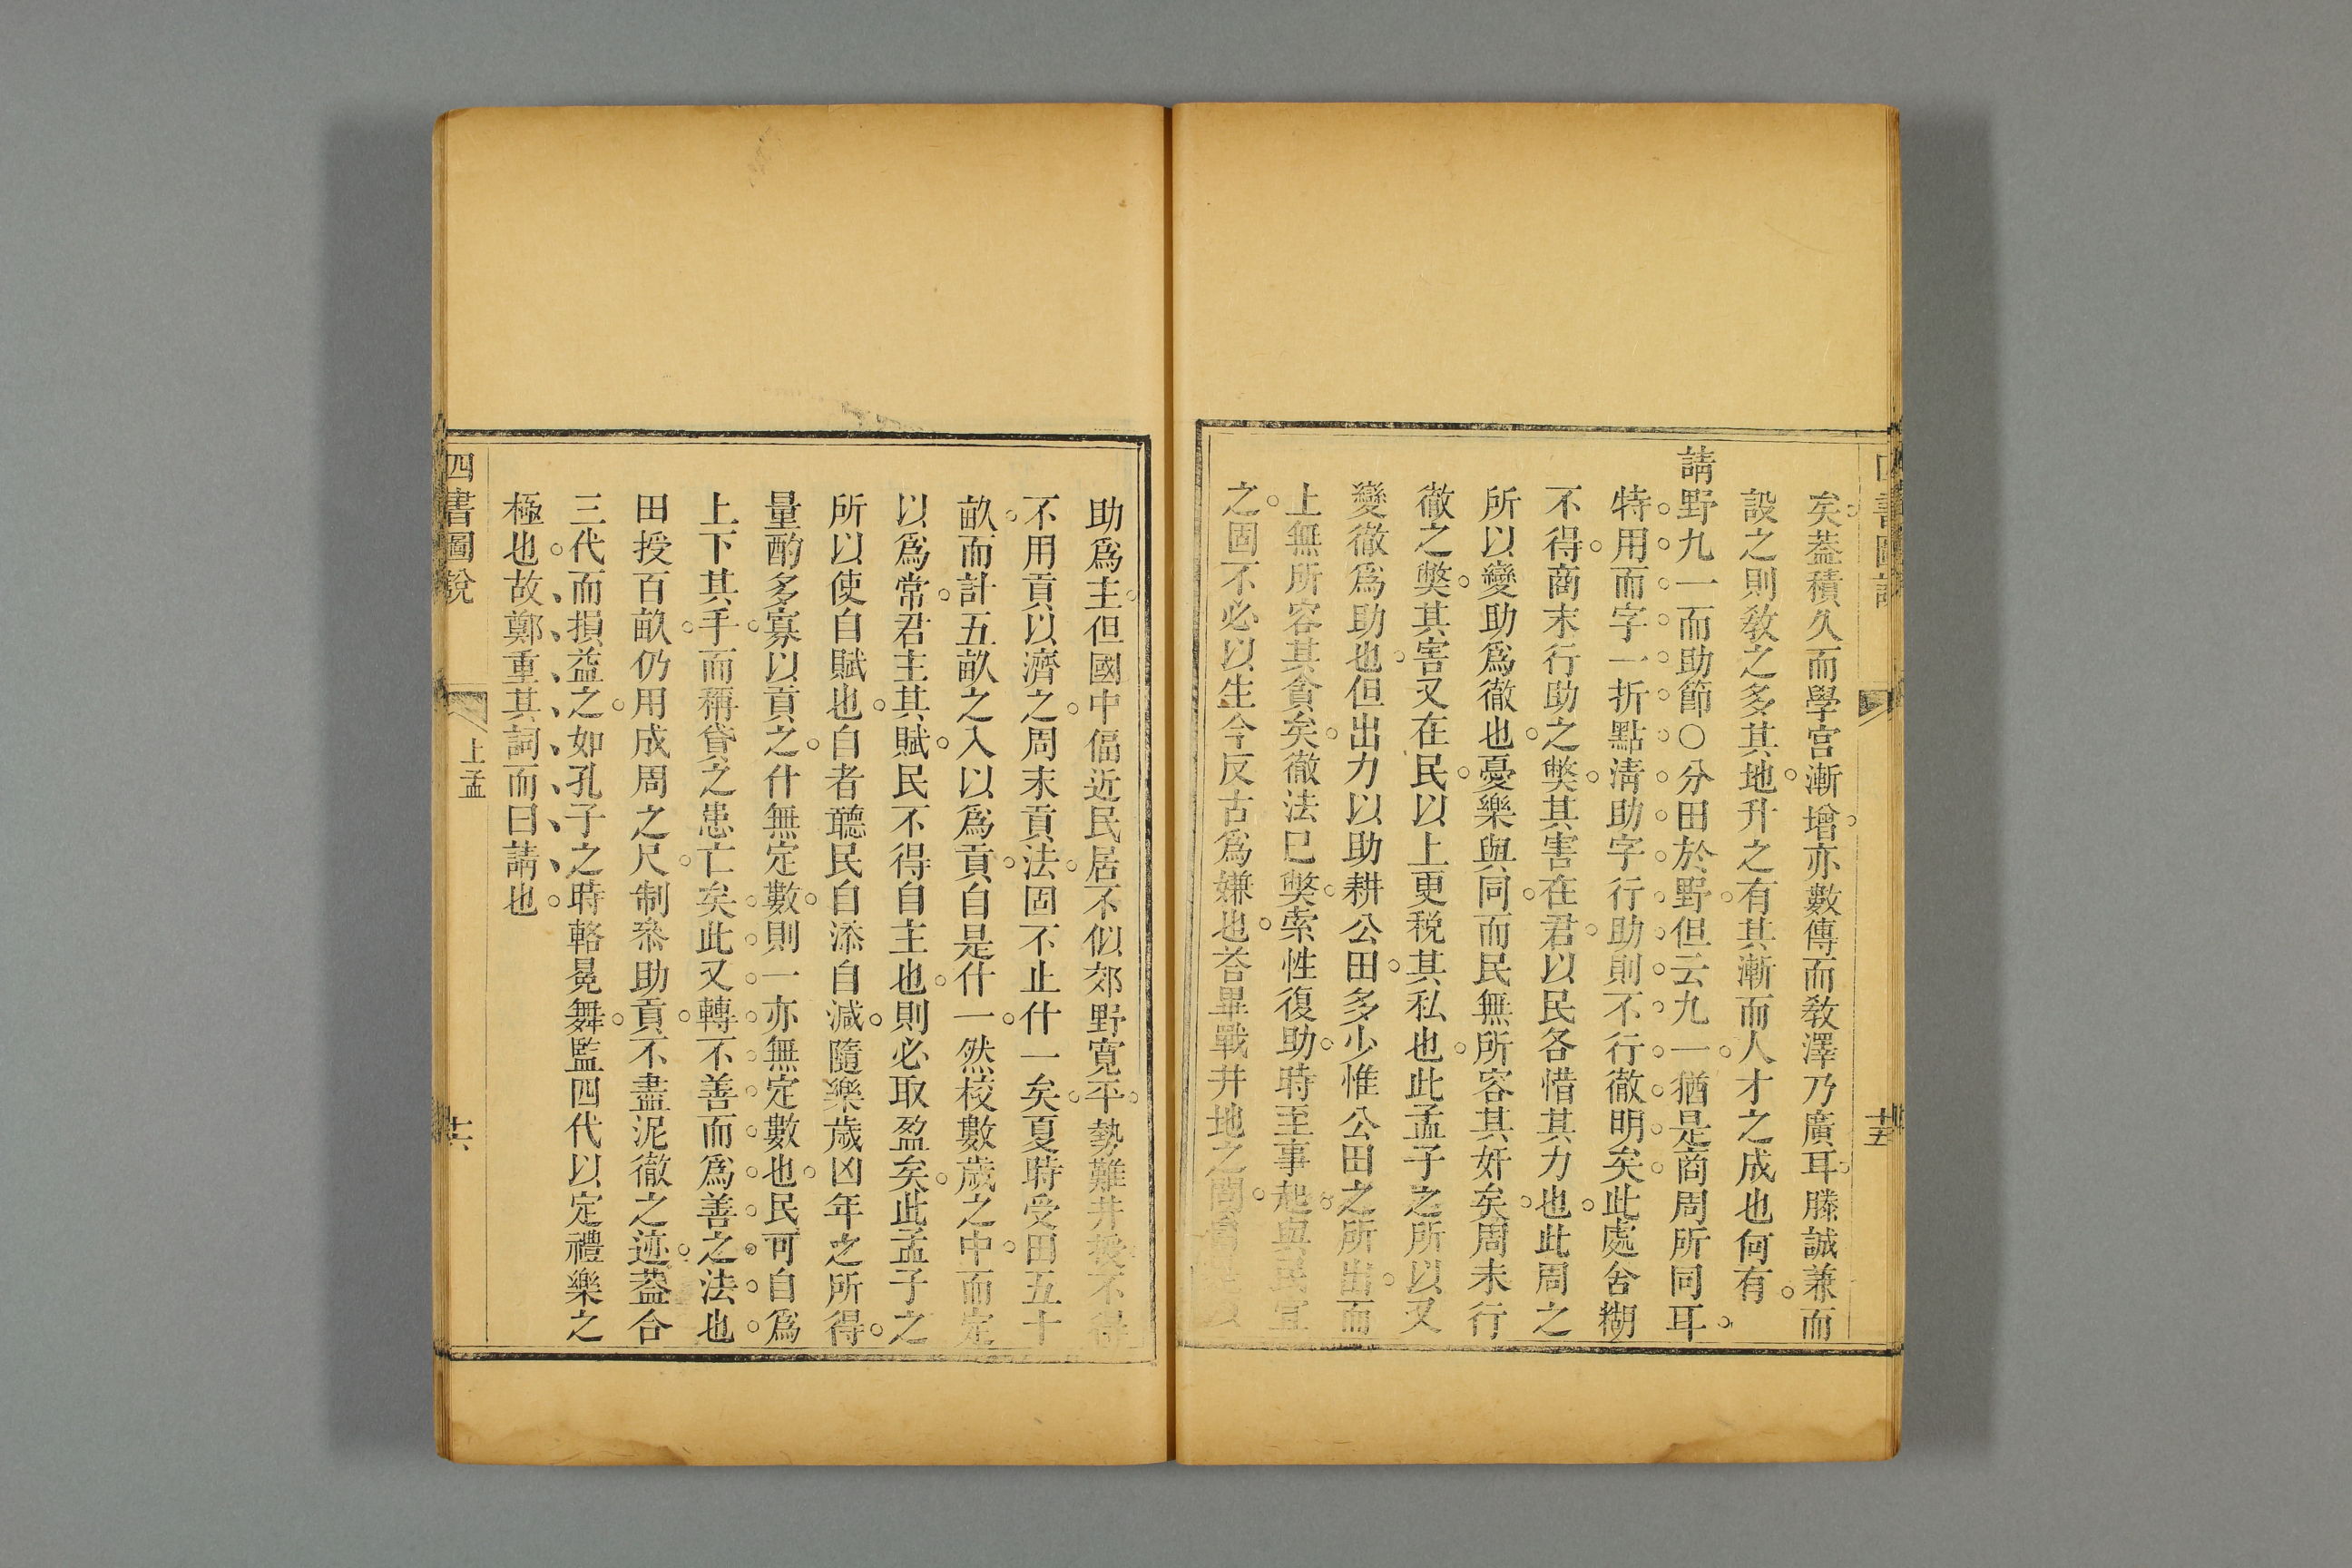 四書圖說
十五
矣葢積久而學宮漸增亦數傳而敎澤乃廣耳滕誠兼而
設之則敎之多其地升之有其漸而人才之成也何有
請野九一而助節○分田於野但云九一猶是商周所同耳
特用而字一折點淸助字行助則不行徹明矣此處含糊
不得商末行助之獘其害在君以民各惜其力也此周之
所以變助爲徹也憂樂與同而民無所容其奸矣周末行
徹之獘其害又在民以上更稅其私也此孟子之所以又
變徹爲助也但出力以助耕公田多少惟公田之所出而
上無所容其貪矣徹法已獘索性復助時至事起與民宜
之固不必以生今反古爲嫌也荅畢戰井地之問
助爲主但國中偪近民居不似郊野寬平勢難井授不得
不用貢以濟之周末貢法固不止什一矣夏時受田五十
畝而計五畝之入以爲貢自是什一然校數歲之中而定
以爲常君主其賦民不得自主也則必取盈矣此孟子之
所以使自賦也自者聽民自添自減隨樂歲凶年之所得
量酌多寡以貢之什無定數則一亦無定數也民可自爲
上下其手而稱貸之患亡矣此又轉不善而爲善之法也
田授百畝仍用成周之尺制叅助貢不盡泥徹之迹葢合
三代而損益之如孔子之時輅冕舞監四代以定禮樂之
極也故鄭重其詞而曰請也
四書圖說
上孟
十六